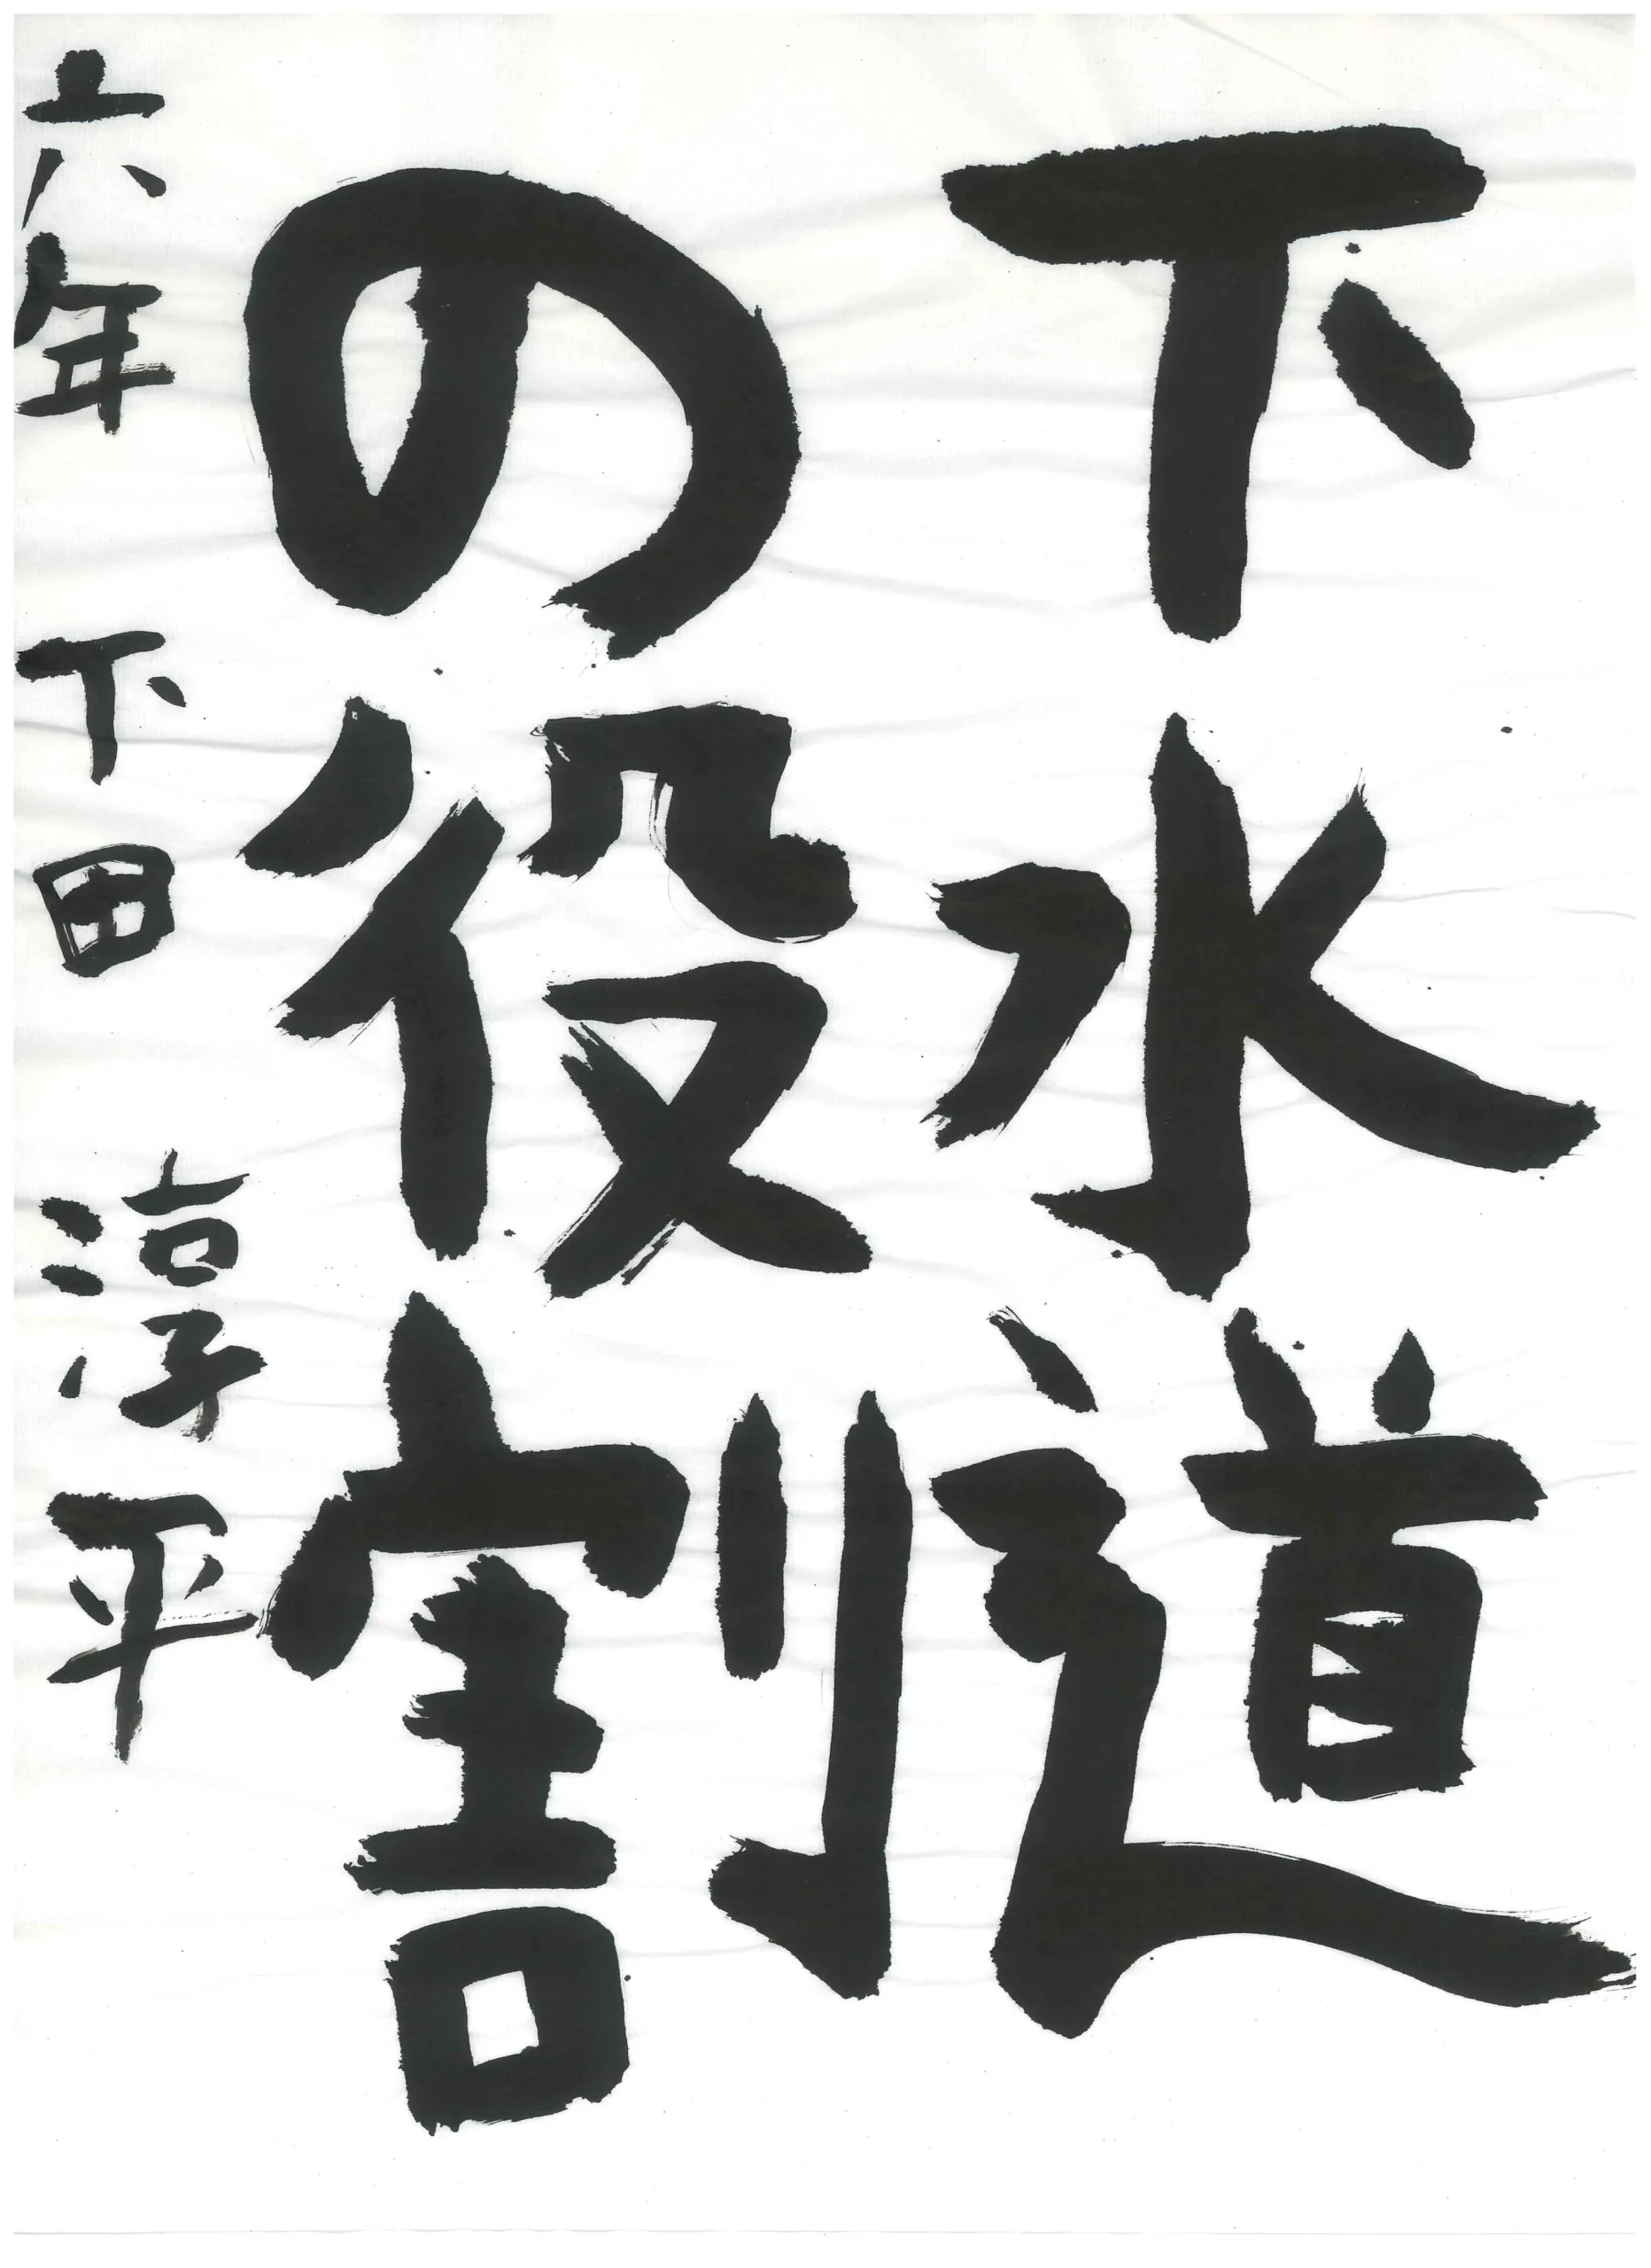 下水道
の役割
六年 下田 淳平